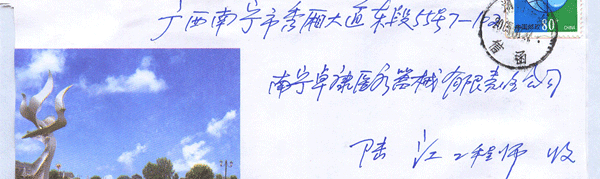 广西南宁市秀厢大道东段55号7-1
南宁卓康医疗器械有限责任公司
陆 江 工程师 收
80
CHINA
信 函